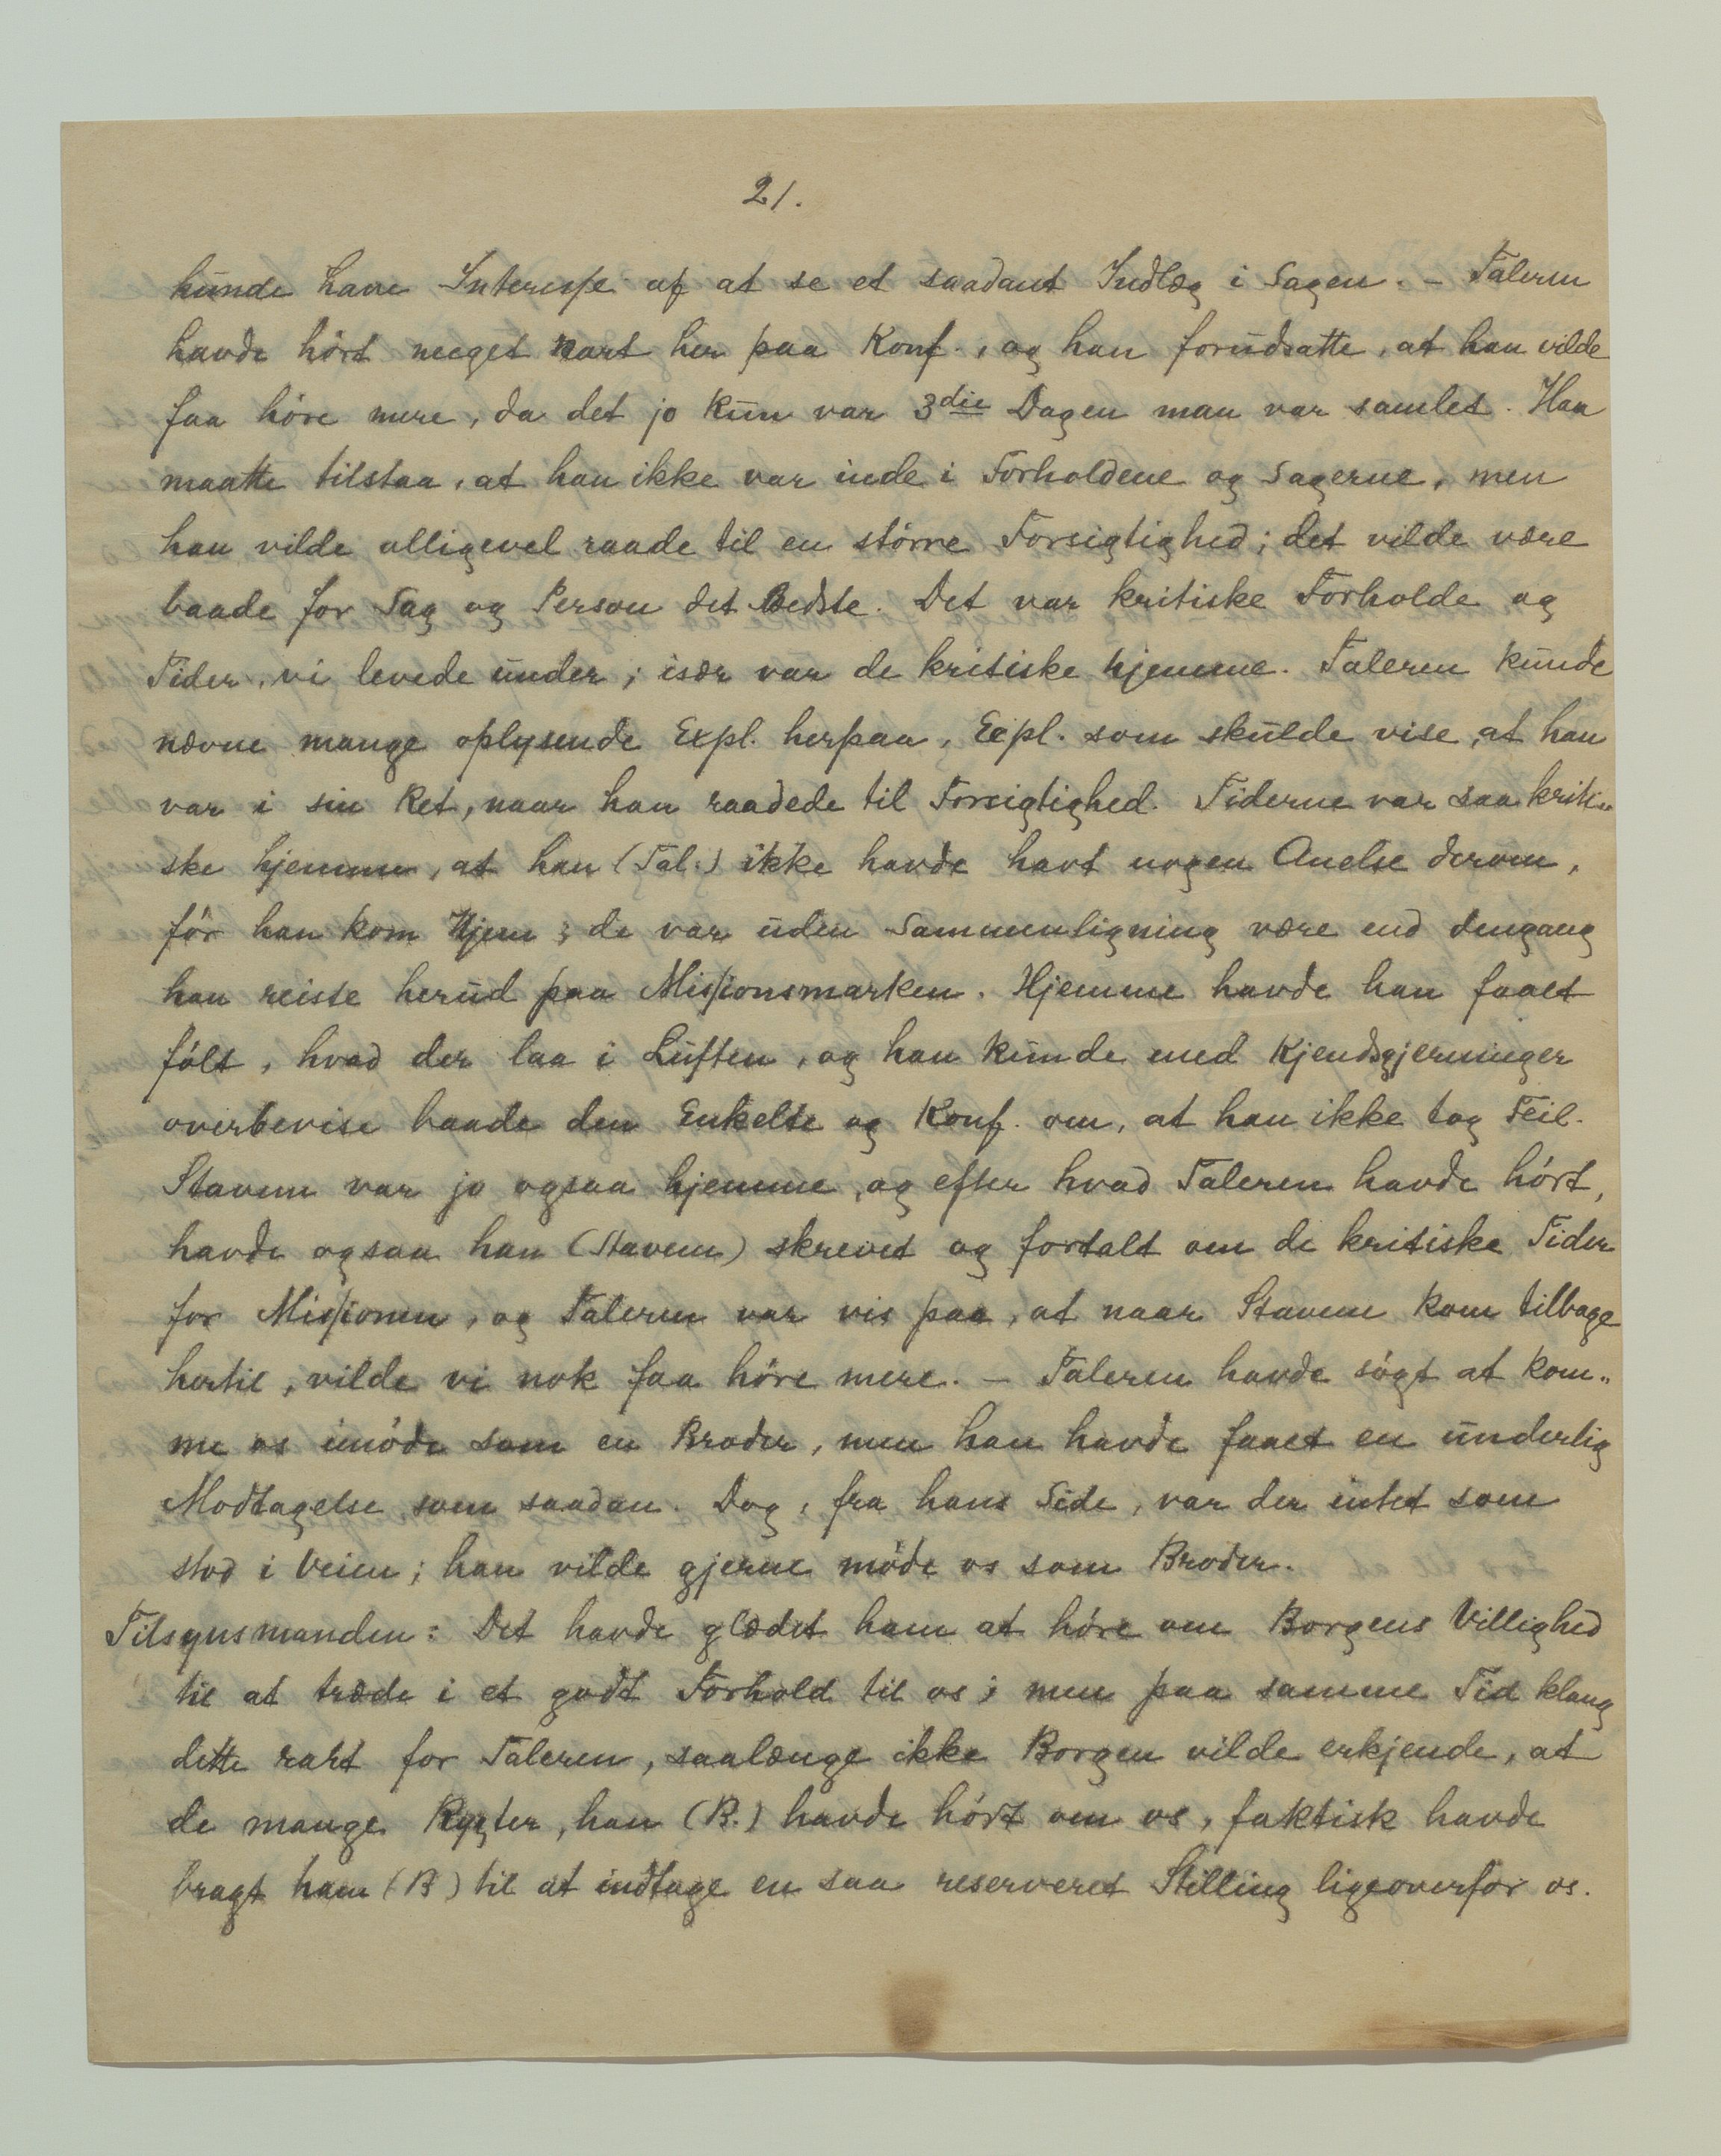 21.
kunde have Interesse af at se et saadant Indlæg i Sagen. – Taleren
havde hørt meget rart her paa Konf., og han forudsatte, at han vilde
faa høre mere, da det jo kun var 3die Dagen man var samlet. Han
maatte tilstaa, at han ikke var inde i Forholdene og Sagerne, men
han vilde alligevel raade til en større Forsigtighed; det vilde være
baade for Sag og Person det Bedste. Det var kritiske Forholde og
Tider, vi levede under; især var de kritiske hjemme. Taleren kunde
nævne mange oplysende Expl. herpaa, Expl. som skulde vise, at han
var i sin Ret, naar han raadede til Forsigtighed. Tiderne var saa kriti„
ske hjemme, at han (Tal.) ikke havde havt nogen Anelse derom,
før han kom Hjem; de var uden Sammenligning være end dengang
han reiste herud paa Missionsmarken. Hjemme havde han faaet
følt, hvad der laa i Luften, og han kunde med Kjendsgjerninger
overbevise baade den Enkelte og Konf. om, at han ikke tog Feil.
Stavem var jo ogsaa hjemme, og efter hvad Taleren havde hørt,
havde ogsaa han (Stavem) skrevet og fortalt om de kritiske Tider
for Missionen, og Taleren var vis paa, at naar Stavem kom tilbage
hertil, vilde vi nok faa høre mere. – Taleren havde søgt at kom„
me os imøde som en Broder, men han havde faaet en underlig
Modtagelse som saadan. Dog, fra hans Side, var der intet som
stod i Veien; han vilde gjerne møde os som Broder.
Tilsynsmanden: Det havde glædet ham at høre om Borgens Villighed
til at træde i et godt Forhold til os; men paa samme Tid klang
dette rart for Taleren, saalænge ikke Borgen vilde erkjende, at
de mange Rygter, han (B.) havde hørt om os, faktisk havde
bragt ham (B) til at indtage en saa reserveret Stilling ligeoverfor os.